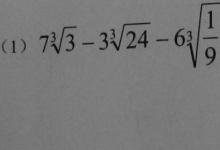 (1) $7\sqrt[3]{3} - 3\sqrt[3]{24} - 6\sqrt[3]{\frac{1}{9}}$